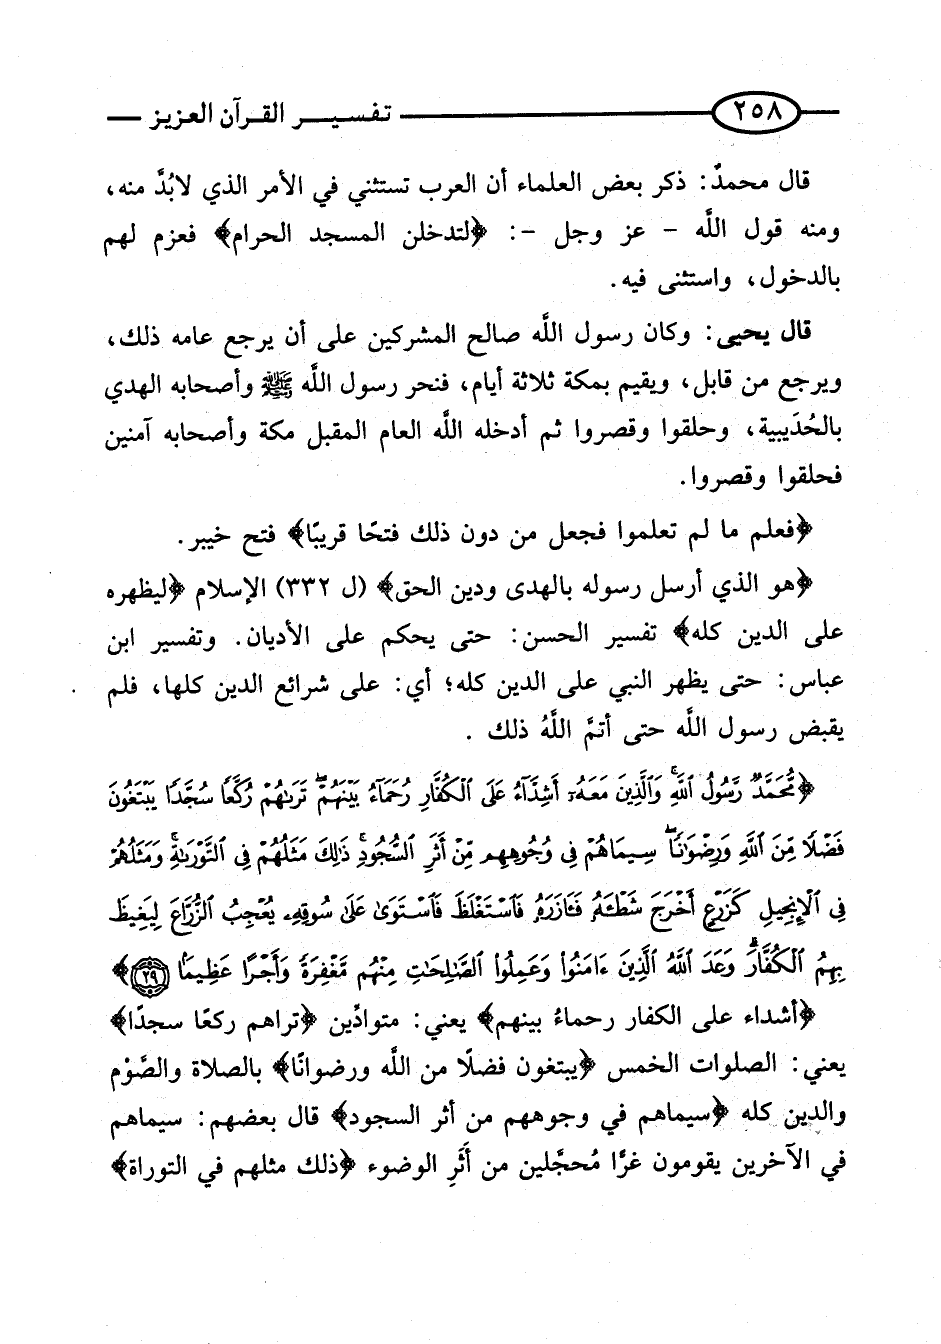 ٢٥٨ تفسير القرآن العزيز
قال محمدٌ: ذكر بعض العلماء أن العرب تستثني في الأمر الذي لابُدَّ منه،
ومنه قول اللَّه - عز وجل -: ﴿لتدخلن المسجد الحرام﴾ فعزم لهم
بالدخول، واستثنى فيه.
قال يحيى: وكان رسول اللَّه صالح المشركين على أن يرجع عامه ذلك،
ويرجع من قابل، ويقيم بمكة ثلاثة أيام، فنحر رسول اللَّه ﷺ وأصحابه الهدي
بالحُدَيبية، وحلقوا وقصروا ثم أدخله اللَّه العام المقبل مكة وأصحابه آمنين
فحلقوا وقصروا.
﴿فعلم ما لم تعلموا فجعل من دون ذلك فتحًا قريبًا﴾ فتح خيبر.
﴿هو الذي أرسل رسوله بالهدى ودين الحق﴾ (ل ٣٣٢) الإسلام ﴿ليظهره
على الدين كله﴾ تفسير الحسن: حتى يحكم على الأديان. وتفسير ابن
عباس: حتى يظهر النبي على الدين كله؛ أي: على شرائع الدين كلها، فلم
يقبض رسول اللَّه حتى أتمَّ اللَّهُ ذلك .
﴿مُّحَمَّدٌ رَّسُولُ ٱللَّهِۚ وَٱلَّذِينَ مَعَهُۥٓ أَشِدَّآءُ عَلَى ٱلْكُفَّارِ رُحَمَآءُ بَيْنَهُمْۖ تَرَىٰهُمْ رُكَّعًا سُجَّدًا يَبْتَغُونَ
فَضْلًا مِّنَ ٱللَّهِ وَرِضْوَٰنًاۖ سِيمَاهُمْ فِى وُجُوهِهِم مِّنْ أَثَرِ ٱلسُّجُودِۚ ذَٰلِكَ مَثَلُهُمْ فِى ٱلتَّوْرَىٰةِۚ وَمَثَلُهُمْ
فِى ٱلْإِنجِيلِ كَزَرْعٍ أَخْرَجَ شَطْـَٔهُۥ فَـَٔازَرَهُۥ فَٱسْتَغْلَظَ فَٱسْتَوَىٰ عَلَىٰ سُوقِهِۦ يُعْجِبُ ٱلزُّرَّاعَ لِيَغِيظَ
بِهِمُ ٱلْكُفَّارَۗ وَعَدَ ٱللَّهُ ٱلَّذِينَ ءَامَنُوا۟ وَعَمِلُوا۟ ٱلصَّٰلِحَٰتِ مِنْهُم مَّغْفِرَةً وَأَجْرًا عَظِيمًۢا ٢٩﴾
﴿أشداء على الكفار رحماءُ بينهم﴾ يعني: متوادِّين ﴿تراهم ركعًا سجدًا﴾
يعني: الصلوات الخمس ﴿يبتغون فضلًا من اللَّه ورضوانًا﴾ بالصلاة والصَّوْم
والدين كله ﴿سيماهم في وجوههم من أثر السجود﴾ قال بعضهم: سيماهم
في الآخرين يقومون غرًّا مُحجَّلين من أَثَرِ الوضوء ﴿ذلك مثلهم في التوراة﴾